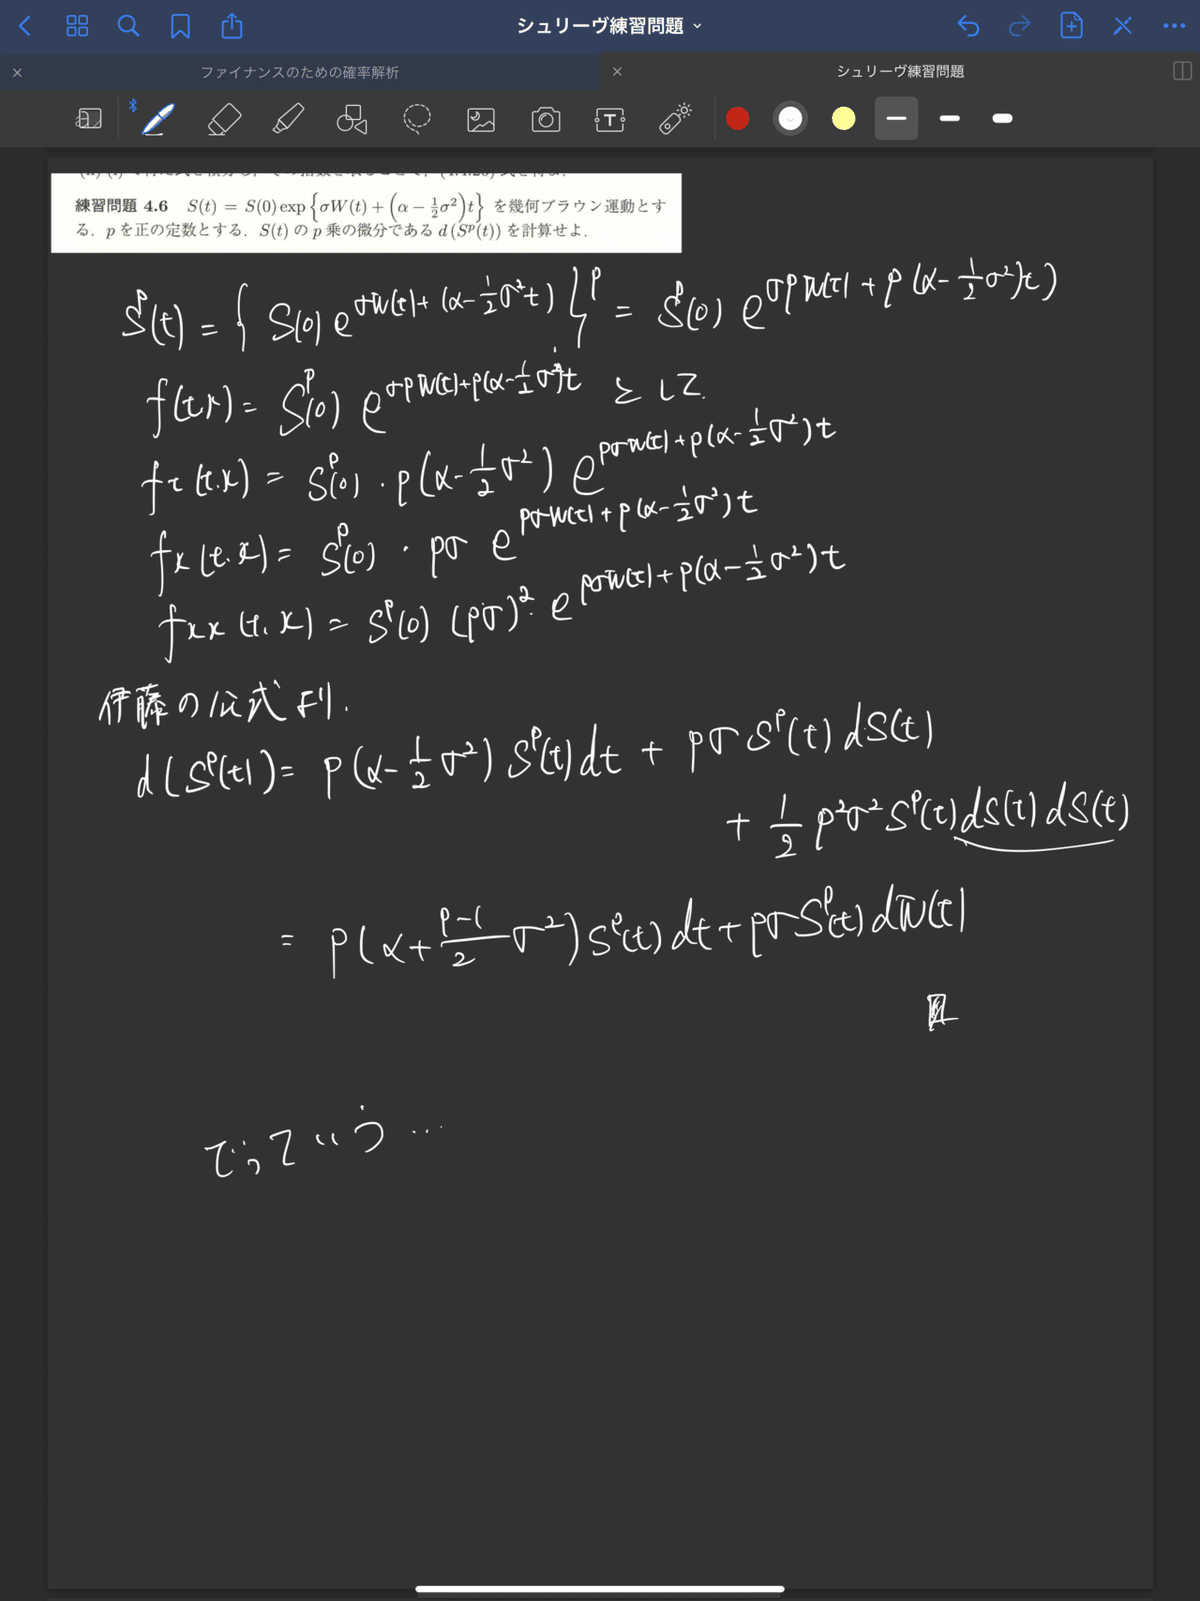 シュリーヴ練習問題
ファイナンスのための確率解析
シュリーヴ練習問題
練習問題 4.6 S(t) = S(0) exp{σW(t) + (α − ½σ²)t} を幾何ブラウン運動とす
る. p を正の定数とする. S(t) の p 乗の微分である d(Sᵖ(t)) を計算せよ.
Sᵖ(t) = { S(0) e^{σW(t) + (α − ½σ²t)} }ᵖ = Sᵖ(0) e^{σpW(t) + p(α − ½σ²)t)}
f(t,x) = Sᵖ(0) e^{σpW(t) + p(α − ½σ²)t} として.
f_t(t,x) = Sᵖ(0) · p(α − ½σ²) e^{pσW(t) + p(α − ½σ²)t}
f_x(t,x) = Sᵖ(0) · pσ e^{pσW(t) + p(α − ½σ²)t}
f_xx(t,x) = Sᵖ(0) (pσ)² · e^{pσW(t) + p(α − ½σ²)t}
伊藤の公式より.
d(Sᵖ(t)) = p(α − ½σ²) Sᵖ(t) dt + pσ Sᵖ(t) dS(t)
+ ½ p²σ² Sᵖ(t) dS(t) dS(t)
= p(α + (p−1)/2 σ²) Sᵖ(t) dt + pσ Sᵖ(t) dW(t)
でっていう…